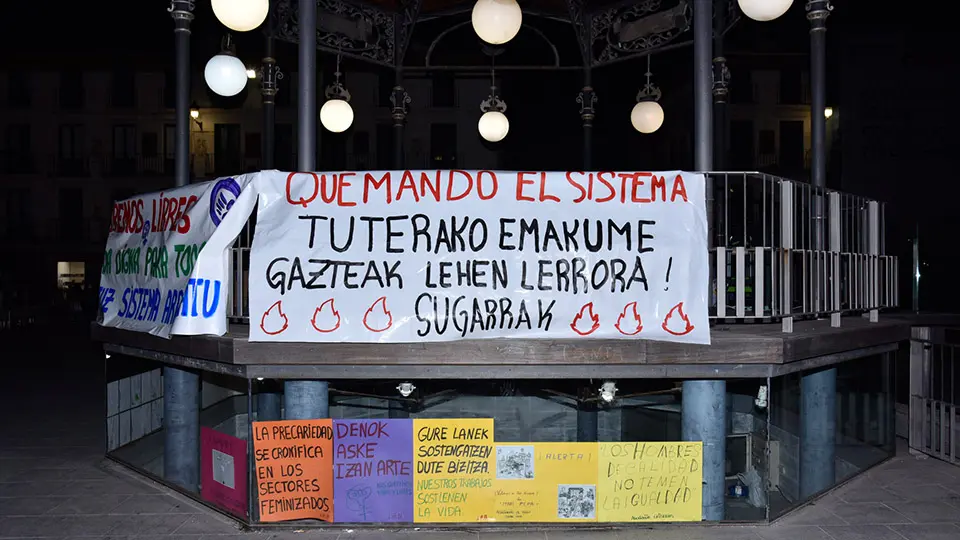 QUEMANDO EL SISTEMA
TUTERAKO EMAKUME
GAZTEAK LEHEN LERRORA!
SUGARRAK
LIBRES
DIGNA PARA
SISTEMA
LA PRECARIEDAD
SE CRONIFICA
EN LOS
SECTORES
FEMINIZADOS
DENOK
ASKE
IZAN ARTE
GURE LANEK
SOSTENGATZEN
DUTE BIZITZA.
NUESTROS TRABAJOS
SOSTIENEN
LA VIDA
¡ALERTA!
LOS HOMBRES
DE CALIDAD
NO TEMEN
LA IGUALDAD